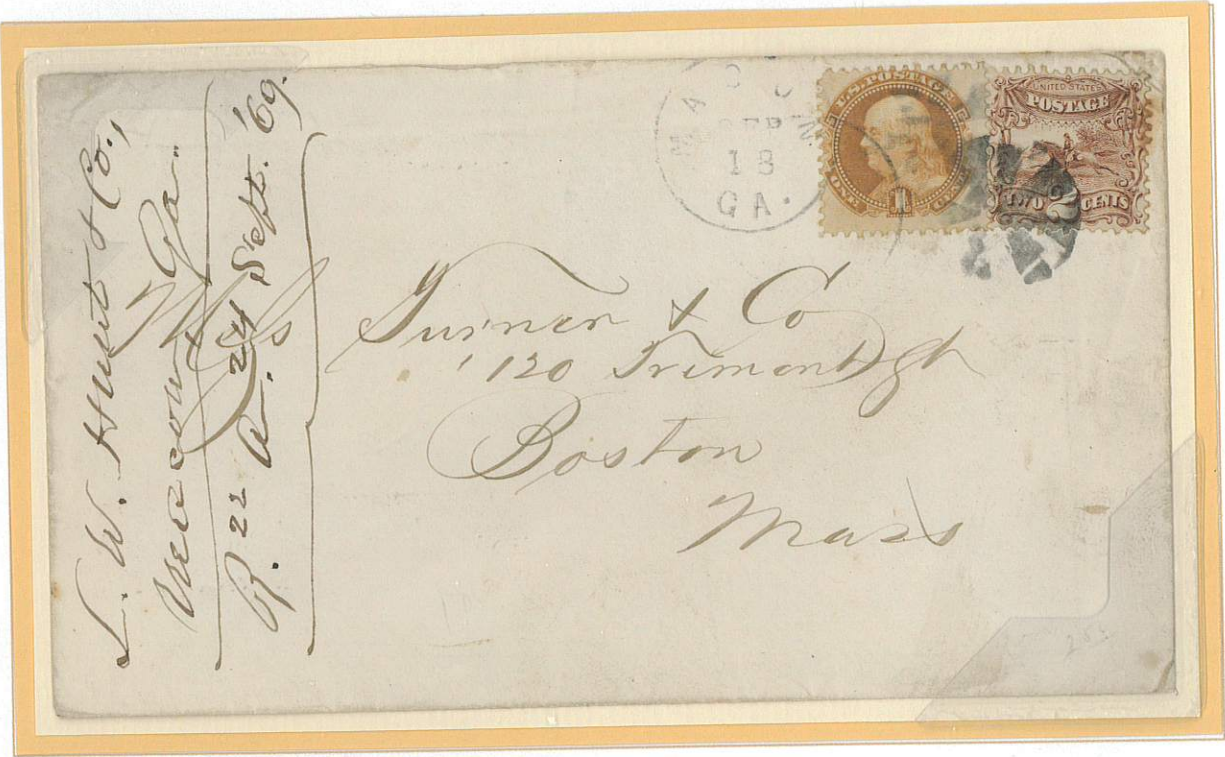 L. W. Hunt & Co.,
Macon, Ga.
R. 22 A. 24 Sept. '69.
MACON
SEP
18
GA.
U.S. POSTAGE
ONE 1 CENT
UNITED STATES
POSTAGE
TWO 2 CENTS
Turner & Co
120 Tremont St
Boston
Mass